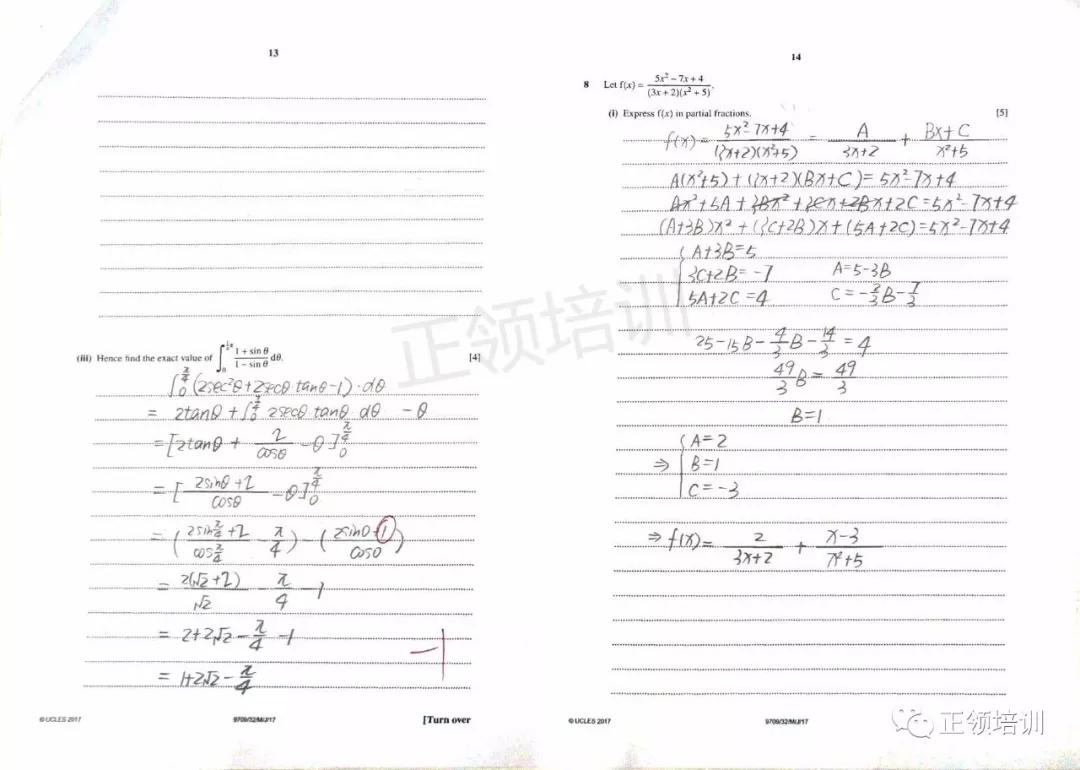 13
(iii) Hence find the exact value of ∫₀^{¼π} (1 + sin θ)/(1 − sin θ) dθ. [4]
∫₀^{π/4} (2sec²θ+2secθ tanθ−1)·dθ
= 2tanθ + ∫₀^{π/4} 2secθ tanθ dθ − θ
= [2tanθ + 2/cosθ − θ]₀^{π/4}
= [(2sinθ+2)/cosθ − θ]₀^{π/4}
= ((2sin π/4 +2)/cos π/4 − π/4) − ((2sin0+1)/cos0)
= 2(√2+2)/√2 − π/4 − 1
= 2+2√2 − π/4 − 1
= 1+2√2 − π/4
−1
© UCLES 2017 9709/32/M/J/17 [Turn over
14
8 Let f(x) = (5x² − 7x + 4)/((3x + 2)(x² + 5)).
(i) Express f(x) in partial fractions. [5]
f(x) = (5x²−7x+4)/((3x+2)(x²+5)) = A/(3x+2) + (Bx+C)/(x²+5)
A(x²+5) + (3x+2)(Bx+C) = 5x²−7x+4
Ax²+5A + 3Bx² + 3Cx+2Bx+2C = 5x²−7x+4
(A+3B)x² + (3C+2B)x + (5A+2C) = 5x²−7x+4
A+3B=5
3C+2B=−7 A=5−3B
5A+2C=4 C=−2/3B−7/3
25−15B−4/3B−14/3=4
49/3B=49/3
B=1
A=2
⇒ B=1
C=−3
⇒ f(x)= 2/(3x+2) + (x−3)/(x²+5)
© UCLES 2017 9709/32/M/J/17
正领培训
正领培训